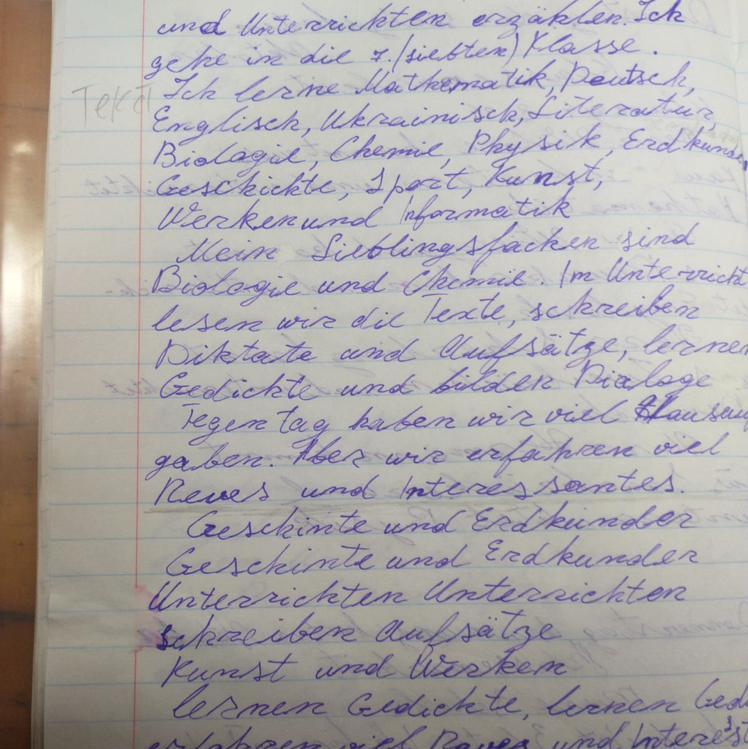 und Unterrichten erzählen. Ick
gehe in die 7. (siebten) Klasse.
Текст
Ick lerne Mathematik, Deutsch,
Englisch, Ukrainisch, Literatur,
Biologie, Chemie, Physik, Erdkunde
Geschickte, Sport, Kunst,
Werken und Informatik
Mein Lieblingsfacken sind
Biologie und Chemie. Im Unterricht
lesen wir die Texte, schreiben
Diktate und Aufsätze, lernen
Gedickte und bilden Dialoge
Tegentag haben wir viel Hausauf
gaben. Aber wir erfahren viel
Neues und Interessantes.
Geschinte und Erdkunder
Geschinte und Erdkunder
Unterrichten Unterrichten
schreiben Aufsätze
Kunst und Werken
lernen Gedickte, lernen Ged
erfahren viel Neues und Interes